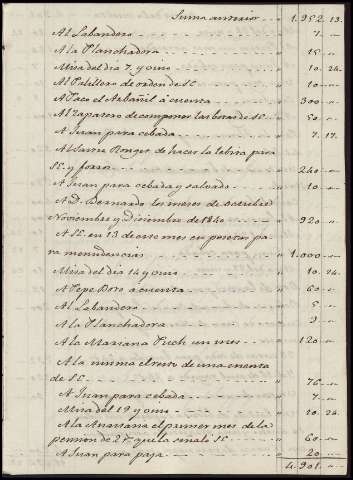 Suma anterior - - " 1.952. 13.
Al Labandero - - - " 7. - "
A la Planchadora - - - " 15 - "
Misa del dia 7, y vino - - - " 10. 24.
Al Polillero de orden de SE - - - " 10 - "
A Paco el Arbañil á cuenta - - - " 300 - "
Al Zapatero de componer las botas de SE. - - " 50 - "
A Juan para cebada - - - " 7. 17.
Al Sastre de hacer la para
SE. y forros - - - " 240 - "
A Juan para cebada y salvado - - " 10 - "
A D. Bernardo los meses de
Noviembre y Diciembre de 1840 - - " 920 - "
A SE. en 13 de este mes en pesetas pa
ra menudencias - - - " 1.000 - "
Misa del dia 14 y vino - - - " 10. 24.
A Pepe á cuenta - - - " 60 - "
Al Labandero - - - " 5 - "
A la Planchadora - - - " 9 - "
A la Mariana un mes - - " 120 - "
A la misma el resto de una cuenta
de SE - - - " 76 - "
A Juan para cebada - - - " 7 - "
Misa del 19 y vino - - - " 10. 24.
A la el primer mes de la
pension de 2 rs. que la señaló SE - - " 60 - "
A Juan para paja - - - " 20 - "
4.901. "